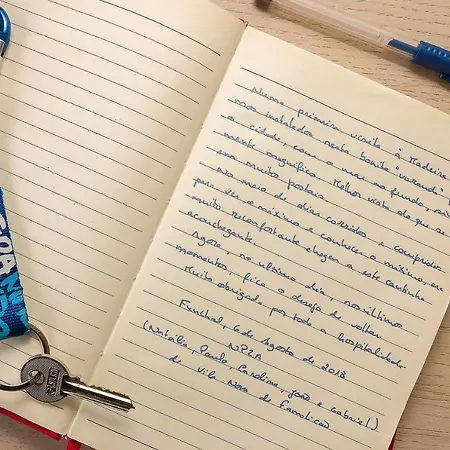 Numa primeira visita à Madeira
mos instalados nesta bonita "varanda"
a cidade, com o mar ao fundo,
mente magnífica. Melhor vista do que se
em muitos postais.
No meio de dias corridos e compridos
para ver o máximo e conhecer o máximo, era
muito reconfortante chegar a este cantinho
aconchegante.
Agora, no último dia, nos últimos
momentos, fica o desejo de voltar.
Muito obrigada por toda a hospitalidade.
Funchal, 6 de Agosto de 2018
(Natália, Paulo, Carolina, João e Gabriel).
de Vila Nova de Famalicão